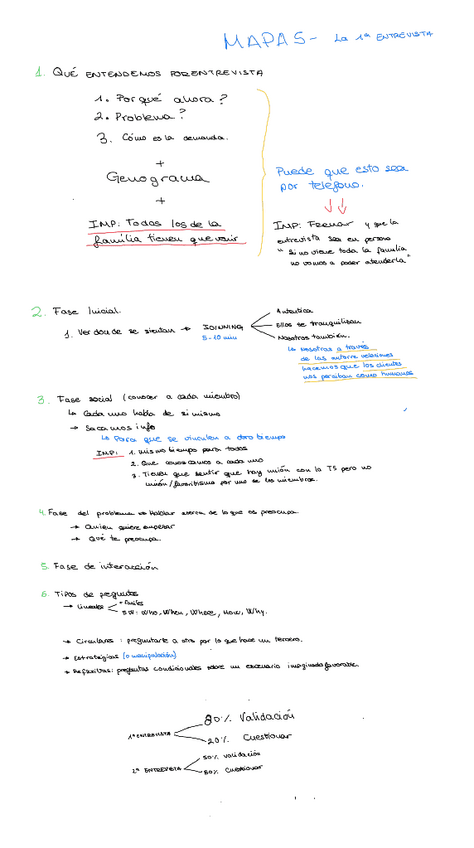 MAPAS - La 1ª ENTREVISTA
1. QUÉ ENTENDEMOS POR ENTREVISTA
1. Por qué ahora?
2. Problema?
3. Cómo es la demanda.
+
Genograma
+
IMP: Todos los de la
familia tienen que venir
Puede que esto sea
por telefono.
IMP: Frenar y que la
entrevista sea en persona
"Si no viene toda la familia
no vamos a poder atenderla"
2. Fase Inicial.
1. Ver donde se sientan → JOINNING
5-10 min
Autentica
Ellos se tranquilizan
Nosotras también.
↳ Nosotras a través
de las
hacemos que los clientes
nos perciban como humanas
3. Fase social (conocer a cada miembro)
↳ Cada uno habla de si mismo
→ Sacamos info
↳ Para que se vinculen a otro tiempo
IMP: 1. mismo tiempo para todos
2. Que conozcamos a cada uno
3. Tienen que sentir que hay unión con la TS pero no
unión/favoritismo por uno de los miembros.
4. Fase del problema → Hablar acerca de lo que os preocupa
→ Quien quiere empezar
→ Qué te preocupa.
5. Fase de interacción
6. Tipos de preguntas
→ Lineales
5W: Who, When, Where, How, Why.
→ Circulares: preguntarle a otro por lo que hace un tercero.
→ Estratégicas (o manipulación)
→ Reflexivas: preguntas condicionales sobre un escenario imaginado favorable.
1ª ENTREVISTA
80% Validación
20% Cuestionar
2ª ENTREVISTA
50% Validación
50% Cuestionar